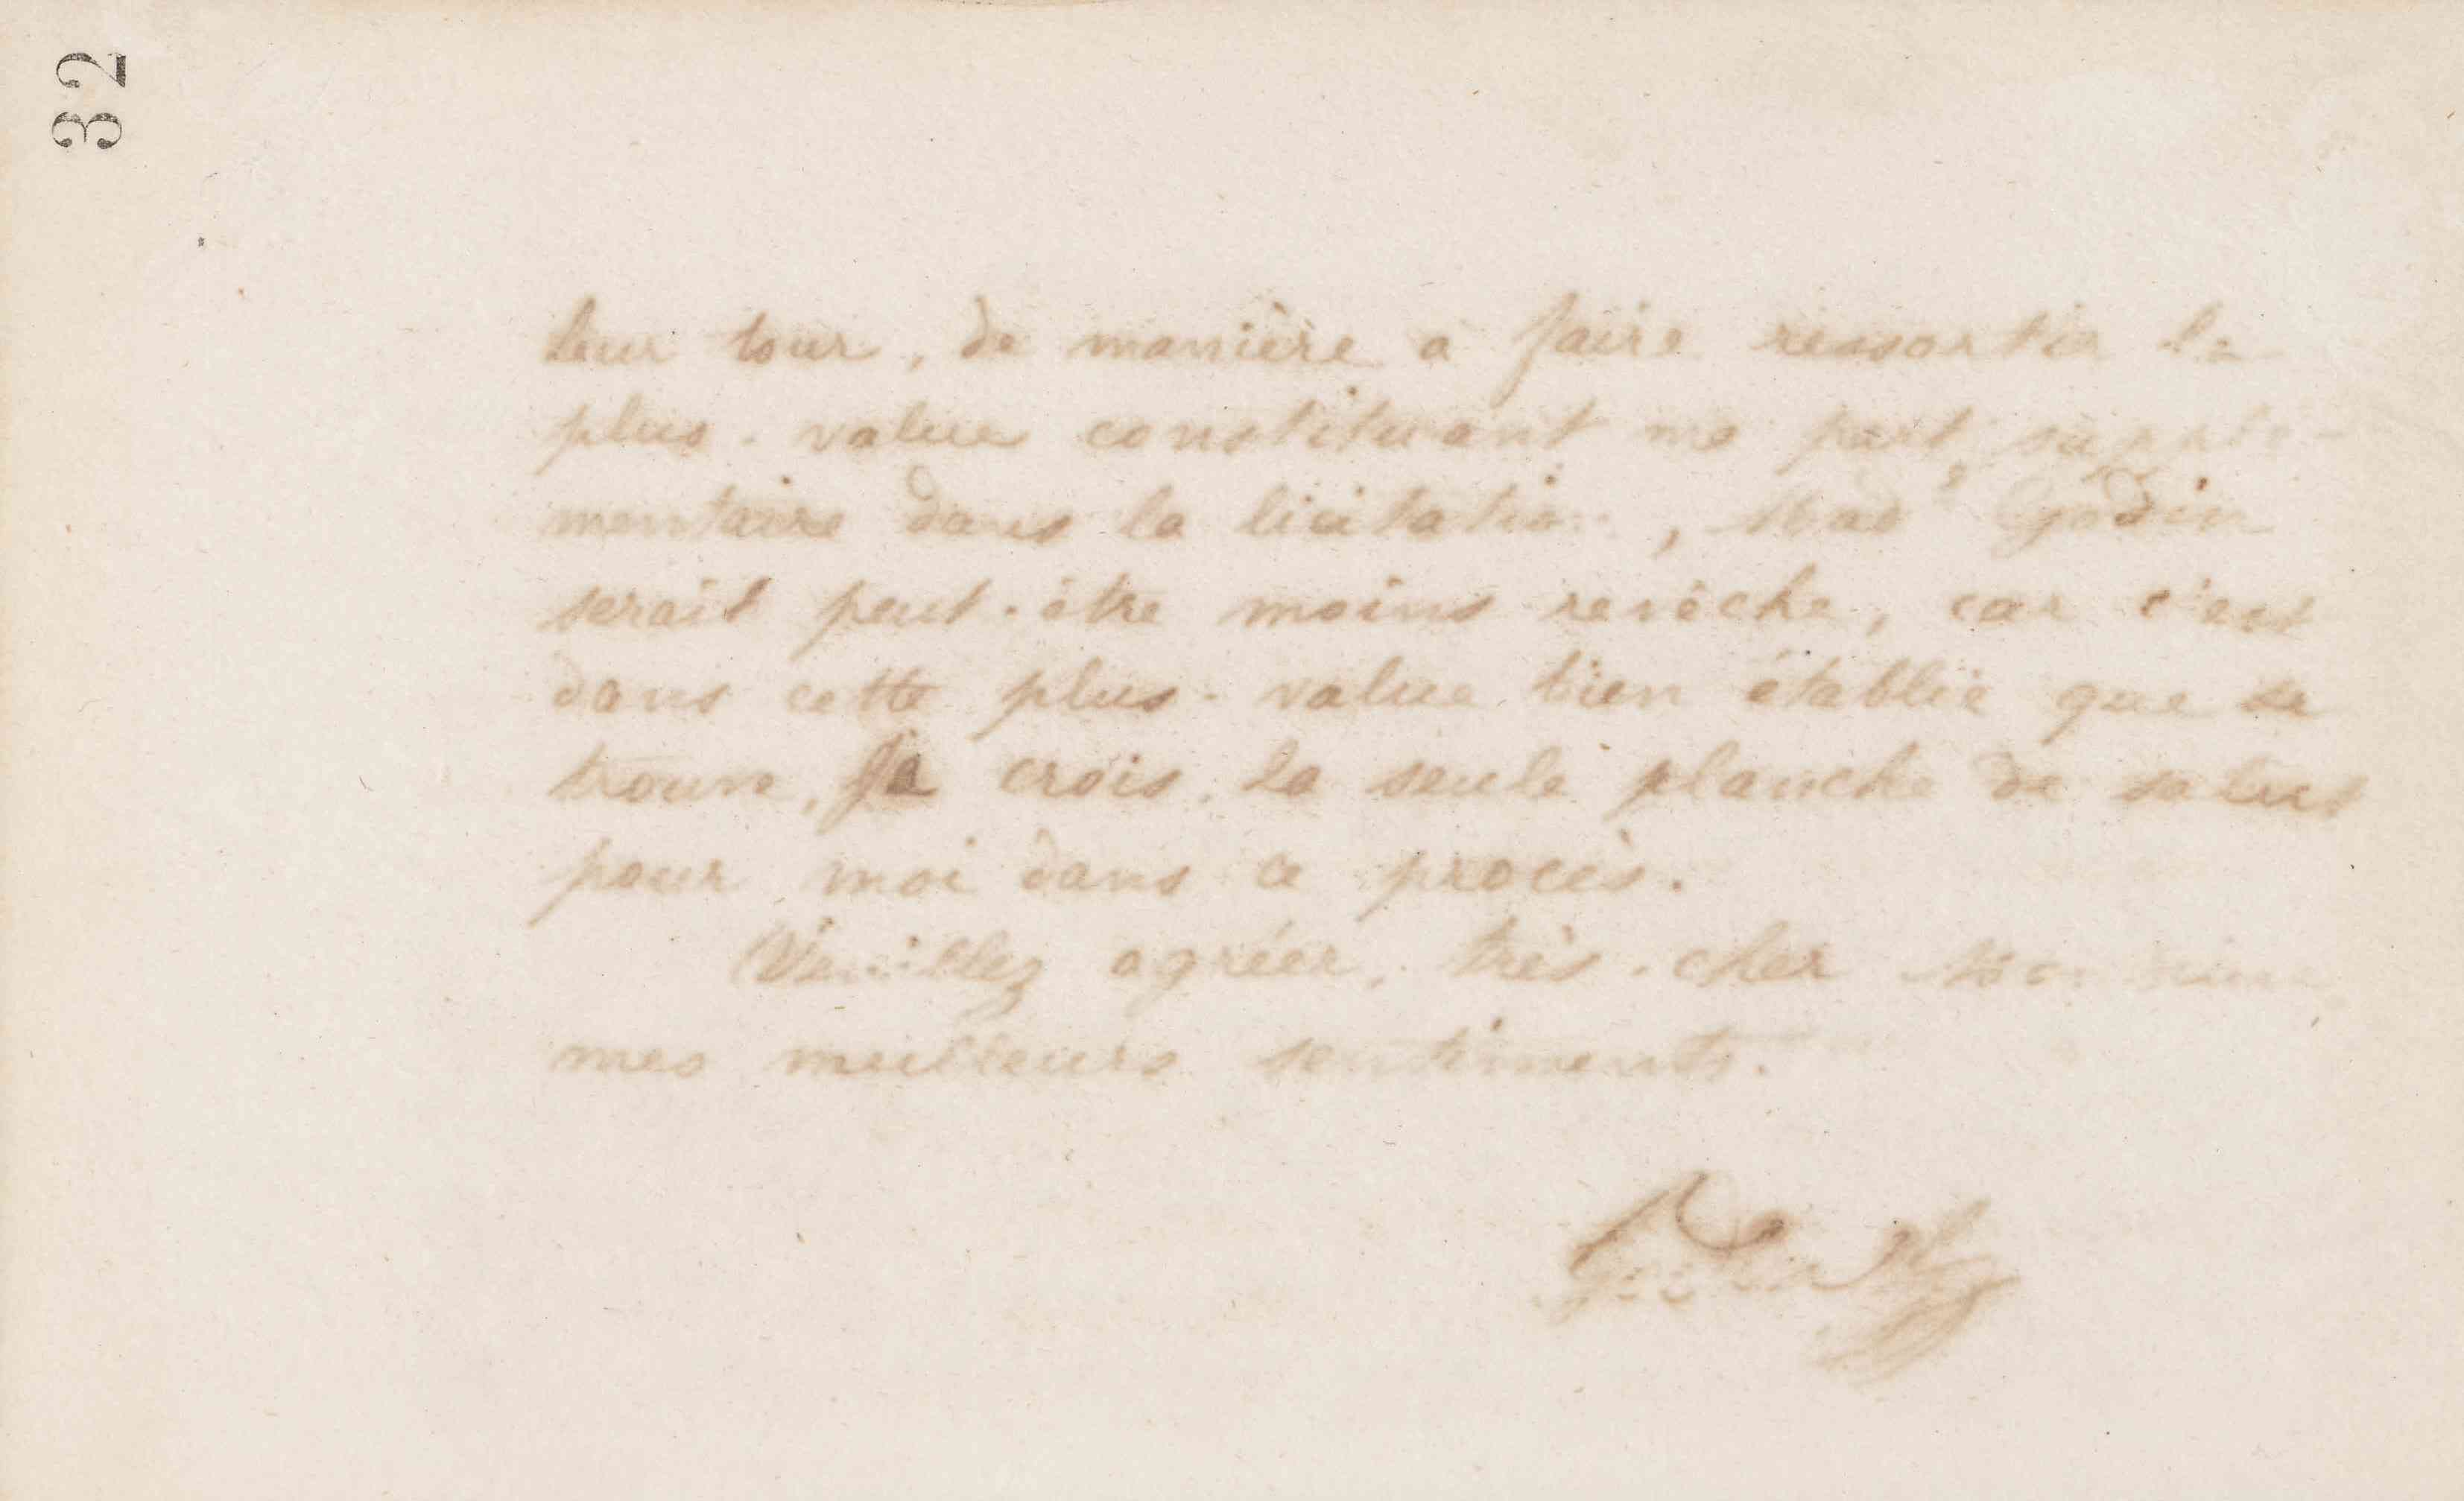 32
leur tour, de manière a faire ressortir la
plus-value constituant ma part supplé-
mentaire dans la licitation, Mad^e Godin
serait peut-être moins revêche, car c'est
dans cette plus-value bien établie que se
trouve, je crois, la seule planche de salut
pour moi dans ce procès.
Veuillez agréer, très-cher Monsieur,
mes meilleurs sentiments.
Godin